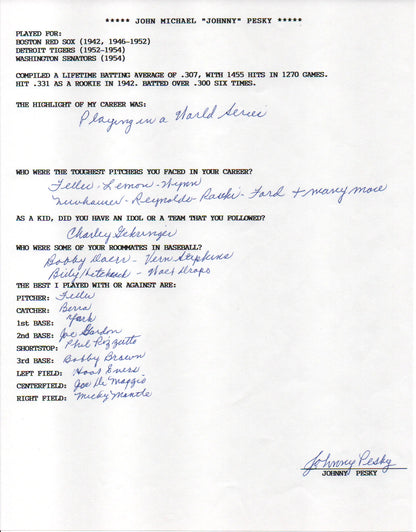 ***** JOHN MICHAEL "JOHNNY" PESKY *****
PLAYED FOR:
BOSTON RED SOX (1942, 1946-1952)
DETROIT TIGERS (1952-1954)
WASHINGTON SENATORS (1954)
COMPILED A LIFETIME BATTING AVERAGE OF .307, WITH 1455 HITS IN 1270 GAMES.
HIT .331 AS A ROOKIE IN 1942. BATTED OVER .300 SIX TIMES.
THE HIGHLIGHT OF MY CAREER WAS:
Playing in a World Series
WHO WERE THE TOUGHEST PITCHERS YOU FACED IN YOUR CAREER?
Feller - Lemon - Wynn
Newhauser - Reynolds - Raski - Ford + many more
AS A KID, DID YOU HAVE AN IDOL OR A TEAM THAT YOU FOLLOWED?
Charley Gehringer
WHO WERE SOME OF YOUR ROOMMATES IN BASEBALL?
Bobby Doerr - Vern Stephens
Billy Hitchcock - Walt Dropo
THE BEST I PLAYED WITH OR AGAINST ARE:
PITCHER: Feller
CATCHER: Berra
1st BASE: York
2nd BASE: Joe Gordon
SHORTSTOP: Phil Rizzuto
3rd BASE: Bobby Brown
LEFT FIELD: Hoot Evers
CENTERFIELD: Joe Di Maggio
RIGHT FIELD: Micky Mantle
Johnny Pesky
JOHNNY PESKY